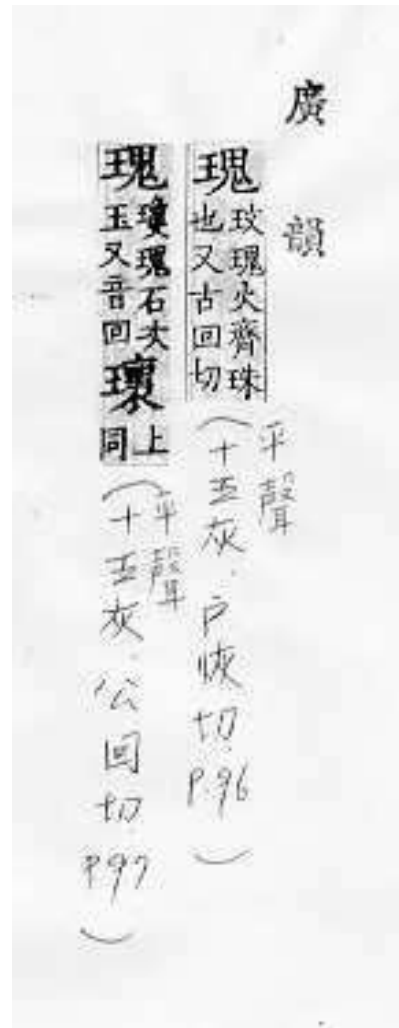 廣韻
瑰
玫瑰火齊珠
也又古回切
平聲
（十五灰．戶恢切．P.96）
瑰
瓊瑰石次
玉又音回
瓌
上
同
平聲
（十五灰．公回切．P.97）